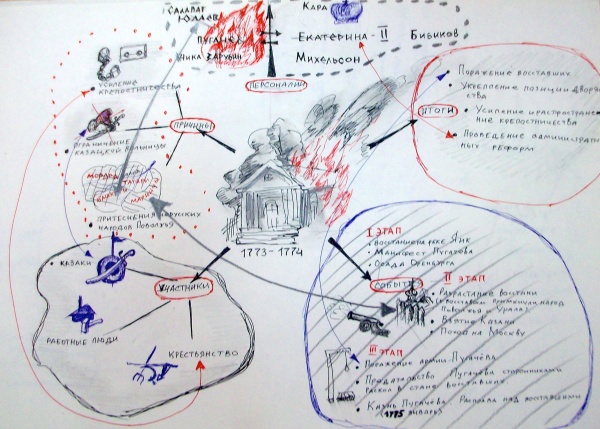 САЛАВАТ
ЮЛАЕВ
ПУГАЧЁВ
ЧИКА ЗАРУБИН
КАРА
ЕКАТЕРИНА - II
БИБИКОВ
МИХЕЛЬСОН
ПЕРСОНАЛИИ
• УСИЛЕНИЕ
КРЕПОСТНИЧЕСТВА
ПРИЧИНЫ
• ОГРАНИЧЕНИЕ
КАЗАЦКОЙ ВОЛЬНИЦЫ
МОРДВА
ТАТАРЫ
• ПРИТЕСНЕНИЯ НЕРУССКИХ
НАРОДОВ ПОВОЛЖЬЯ
ИТОГИ
• ПОРАЖЕНИЕ ВОССТАВШИХ
• УКРЕПЛЕНИЕ ПОЗИЦИИ ДВОРЯН-
СТВА
• УСИЛЕНИЕ И РАСПРОСТРАНЕ-
НИЕ КРЕПОСТНИЧЕСТВА
• ПРОВЕДЕНИЕ АДМИНИСТРАТИВ-
НЫХ РЕФОРМ
1773-1774
УЧАСТНИКИ
• КАЗАКИ
РАБОТНЫЕ ЛЮДИ
КРЕСТЬЯНСТВО
СОБЫТИЯ
I ЭТАП
• ВОССТАНИЕ НА РЕКЕ ЯИК
• МАНИФЕСТ ПУГАЧЁВА
• ОСАДА ОРЕНБУРГА
II ЭТАП
• РАЗРАСТАНИЕ ВОССТАНИЯ
(К ВОССТАВШИМ ПРИМКНУЛИ НАРОДЫ
ПОВОЛЖЬЯ И УРАЛА)
• ВЗЯТИЕ КАЗАНИ
• ПОХОД НА МОСКВУ
III ЭТАП
• ПОРАЖЕНИЕ АРМИИ ПУГАЧЁВА
• ПРЕДАТЕЛЬСТВО ПУГАЧЁВА СТОРОННИКАМИ
РАСКОЛ В СТАНЕ ВОССТАВШИХ
• КАЗНЬ ПУГАЧЁВА. РАСПРАВА НАД ВОССТАВШИМИ
(1775 ЯНВАРЬ)